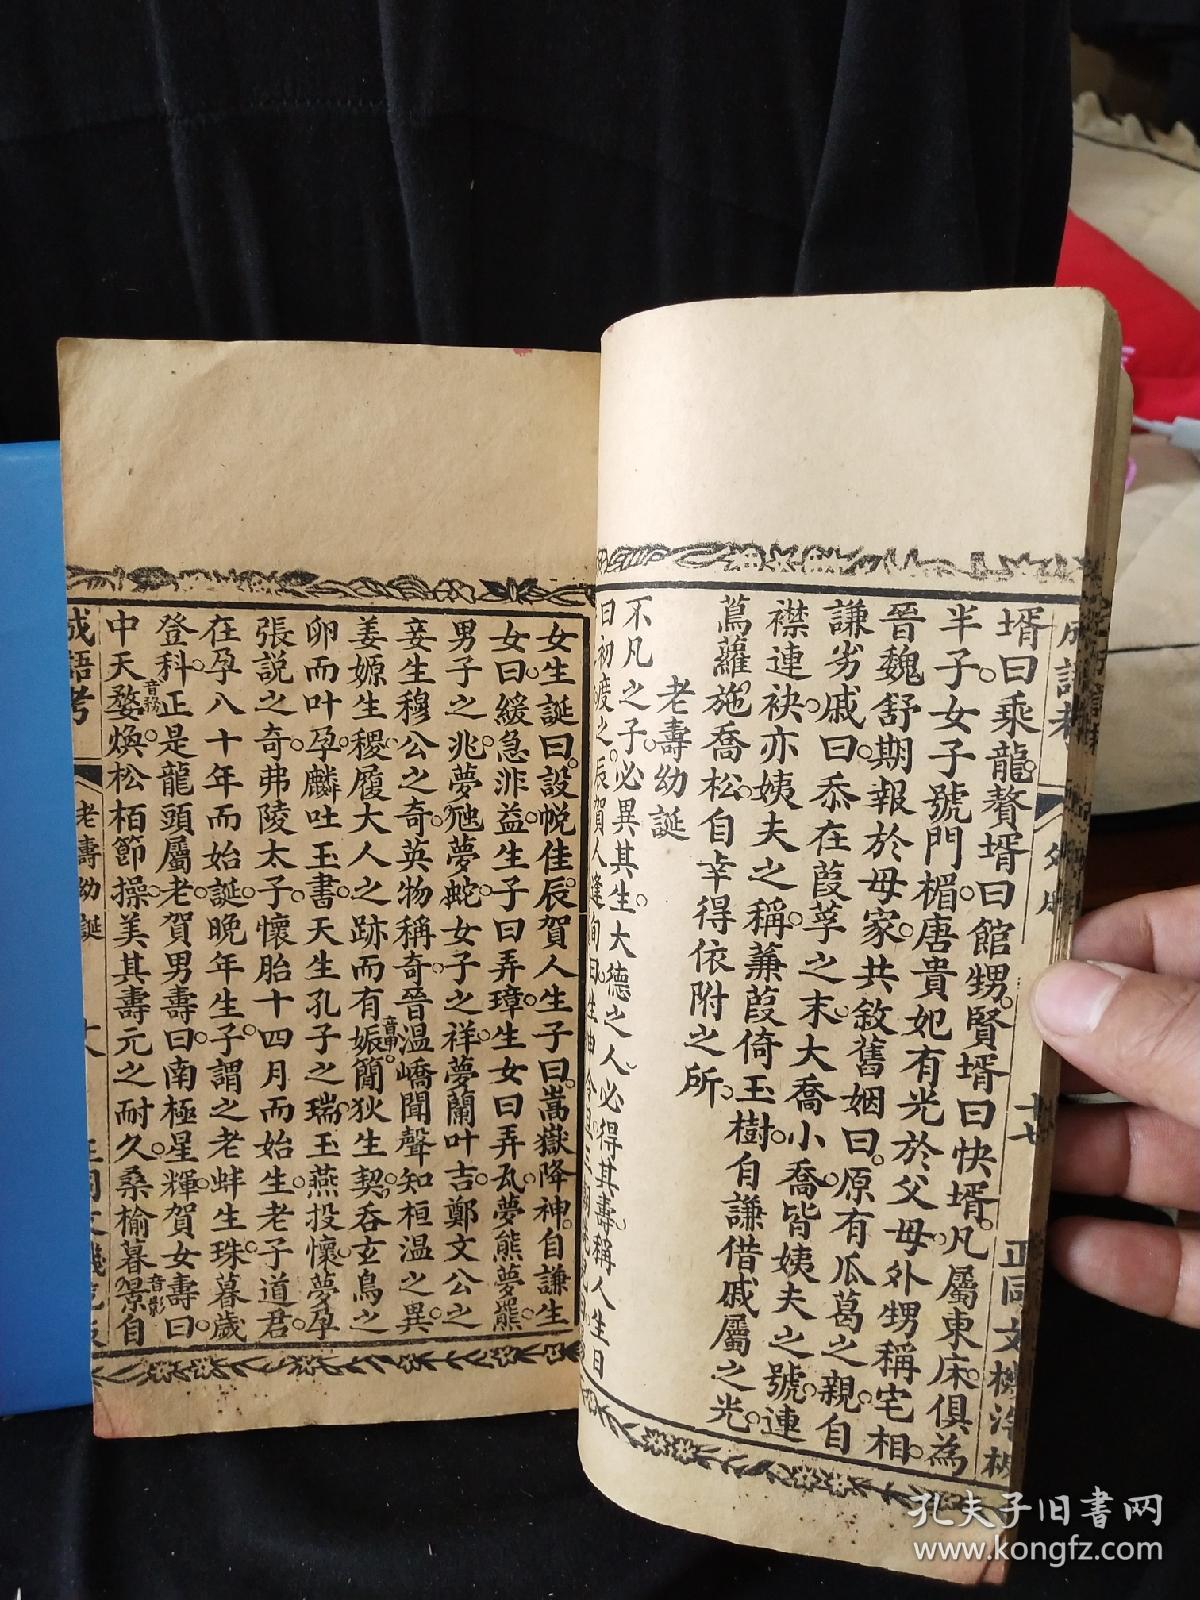 壻曰乘龍。贅壻曰館甥。賢壻曰快壻。凡屬東床。俱為
半子。女子號門楣。唐貴妃有光於父母。外甥稱宅相。
晉魏舒期報於母家。共敘舊姻。曰原有瓜葛之親。自
謙劣戚。曰忝在葭莩之末。大喬小喬。皆姨夫之號。連
襟連袂。亦姨夫之稱。蒹葭倚玉樹。自謙借戚屬之光。
蔦蘿施喬松。自幸得依附之所。
老壽幼誕
不凡之子。必異其生。大德之人。必得其壽。稱人生日
曰初度之辰。賀人逢旬曰生申令旦。三朝洗兒曰
正同文機器板
十七
女生誕曰。設帨佳辰。賀人生子曰。嵩嶽降神。自謙生
女曰。緩急非益。生子曰弄璋。生女曰弄瓦。夢熊夢羆。
男子之兆。夢虺夢蛇。女子之祥。夢蘭叶吉。鄭文公之
妾生穆公之奇。英物稱奇。晉溫嶠聞聲知桓溫之異。
姜嫄生稷。履大人之跡而有娠。音申簡狄生契。吞玄鳥之
卵而叶孕。麟吐玉書。天生孔子之瑞。玉燕投懷。夢孕
張說之奇。弗陵太子。懷胎十四月而始生。老子道君。
在孕八十年而始誕。晚年生子。謂之老蚌生珠。暮歲
登科。正是龍頭屬老。賀男壽曰。南極星輝。賀女壽曰。
中天婺音務煥。松栢節操。美其壽元之耐久。桑榆暮景音影自
成語考
老壽幼誕
十八